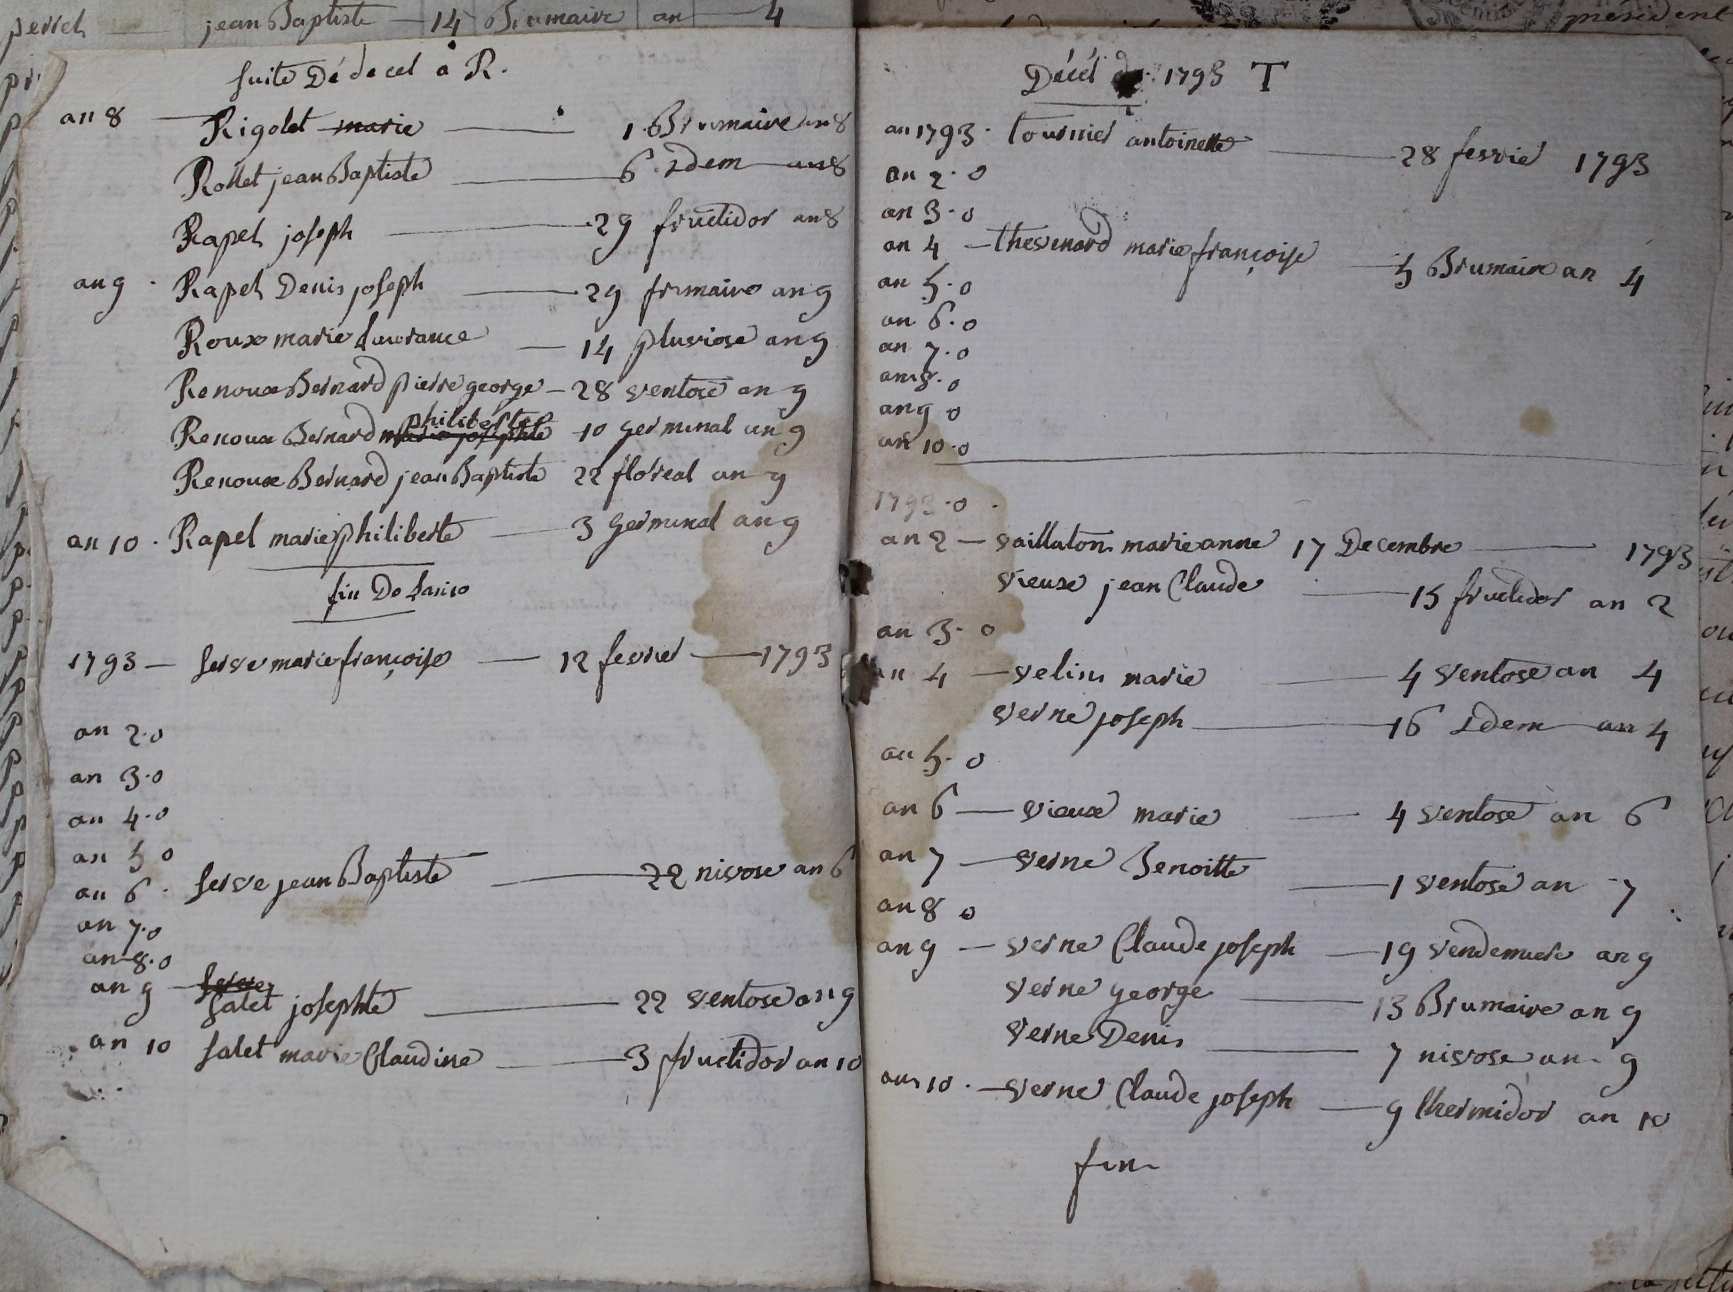 perret jean Baptiste 14 Brumaire an 4
suite Dé de cet a R.
an 8 Rigolet marie 1 Brumaire an 8
Rollet jean Baptiste 6 Idem an 8
Rapet joseph 29 fructidor an 8
an 9 Rapet Denis joseph 29 frimaire an 9
Roux marie laurance 14 pluviose an 9
Renoux Bernard pierre george 28 ventose an 9
philiberte
Renoux Bernard marie josephte 10 germinal an 9
Renoux Bernard jean Baptiste 22 floreal an 9
an 10 Rapet marie philiberte 3 germinal an 9
fin De
1793 serve marie françoise 12 fevrier 1793
an 2.0
an 3.0
an 4.0
an 5 0
an 6 serve jean Baptiste 22 nivose an 6
an 7.0
an 8.0
an 9 serve
salet josephte 22 ventose an 9
an 10 salet marie Claudine 3 fructidor an 10
Décét de 1793 T
an 1793 tournier antoinette 28 fevrie 1793
an 2.0
an 3.0
an 4 thevenard marie françoise 5 Brumaire an 4
an 5.0
an 6.0
an 7.0
an 8.0
an 9 0
an 10.0
1793.0
an 2 vaillaton marie anne 17 Decembre 1793
vieux jean Claude 15 fructidor an 2
an 3.0
an 4 velin marie 4 ventose an 4
verne joseph 16 Idem an 4
an 5.0
an 6 vieux marie 4 ventose an 6
an 7 verne Benoitte 1 ventose an 7
an 8 0
an 9 verne Claude joseph 19 vendemiere an 9
verne george 13 Brumaire an 9
verne Denis 7 nivose an 9
an 10 verne Claude joseph 9 thermidor an 10
fin